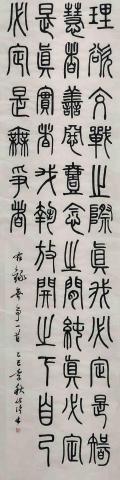 理欲交戰之際真我必定是智
慧者善惡意念之間純真必定
是真實者我執放開之下自己
必定是無爭者
無爭一首 乙巳季秋 書